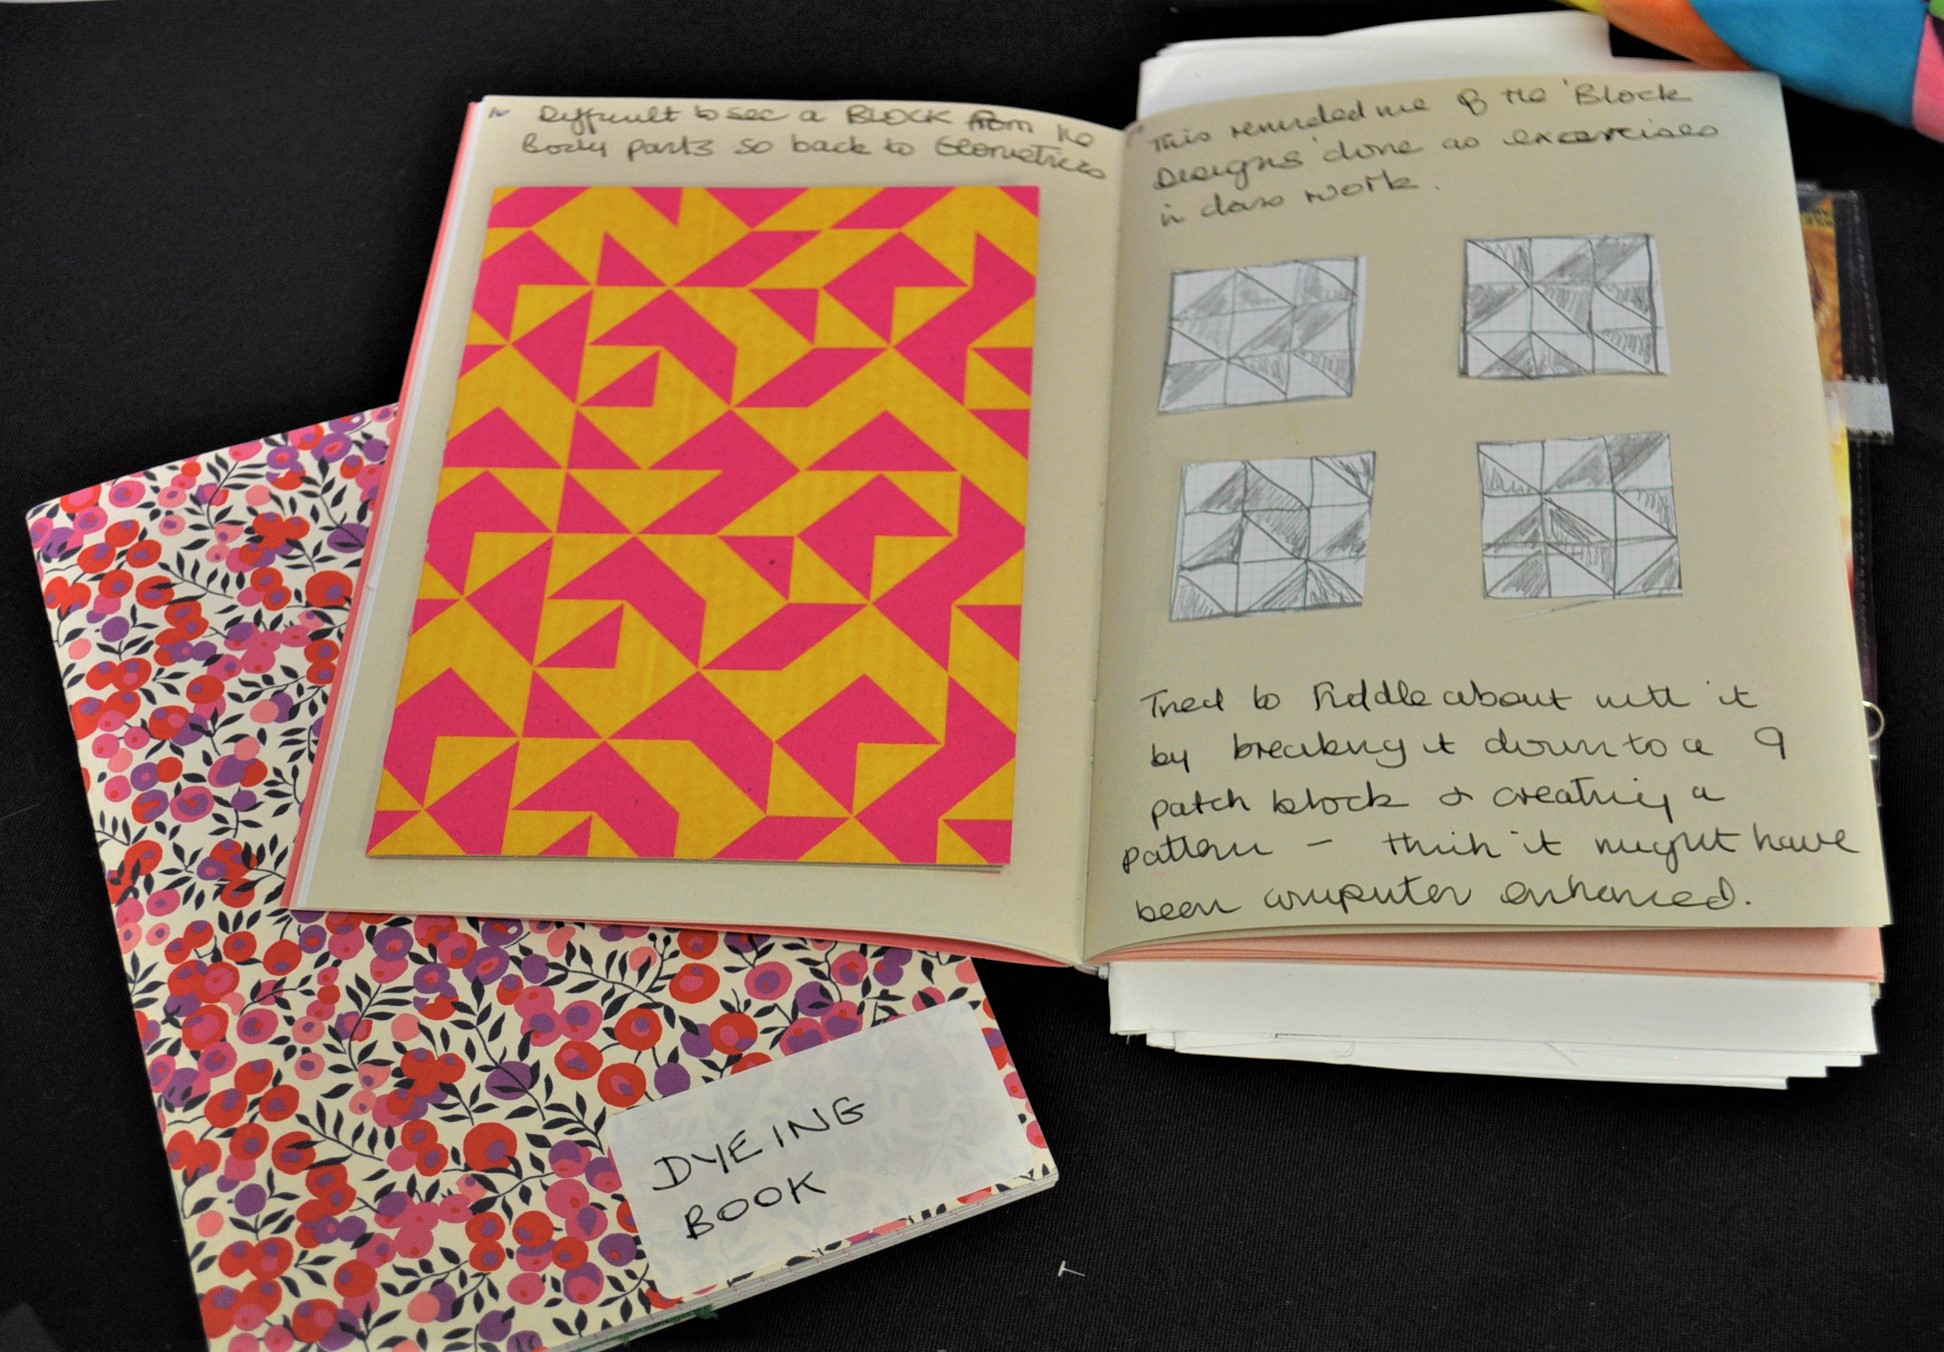 Difficult to see a BLOCK from the
Body parts so back to Geometrics
This reminded me of the 'Block
Designs' done as excercises
in class work.
Tried to fiddle about with it
by breaking it down to a 9
patch block & creating a
pattern - think it might have
been computer enhanced.
DYEING
BOOK